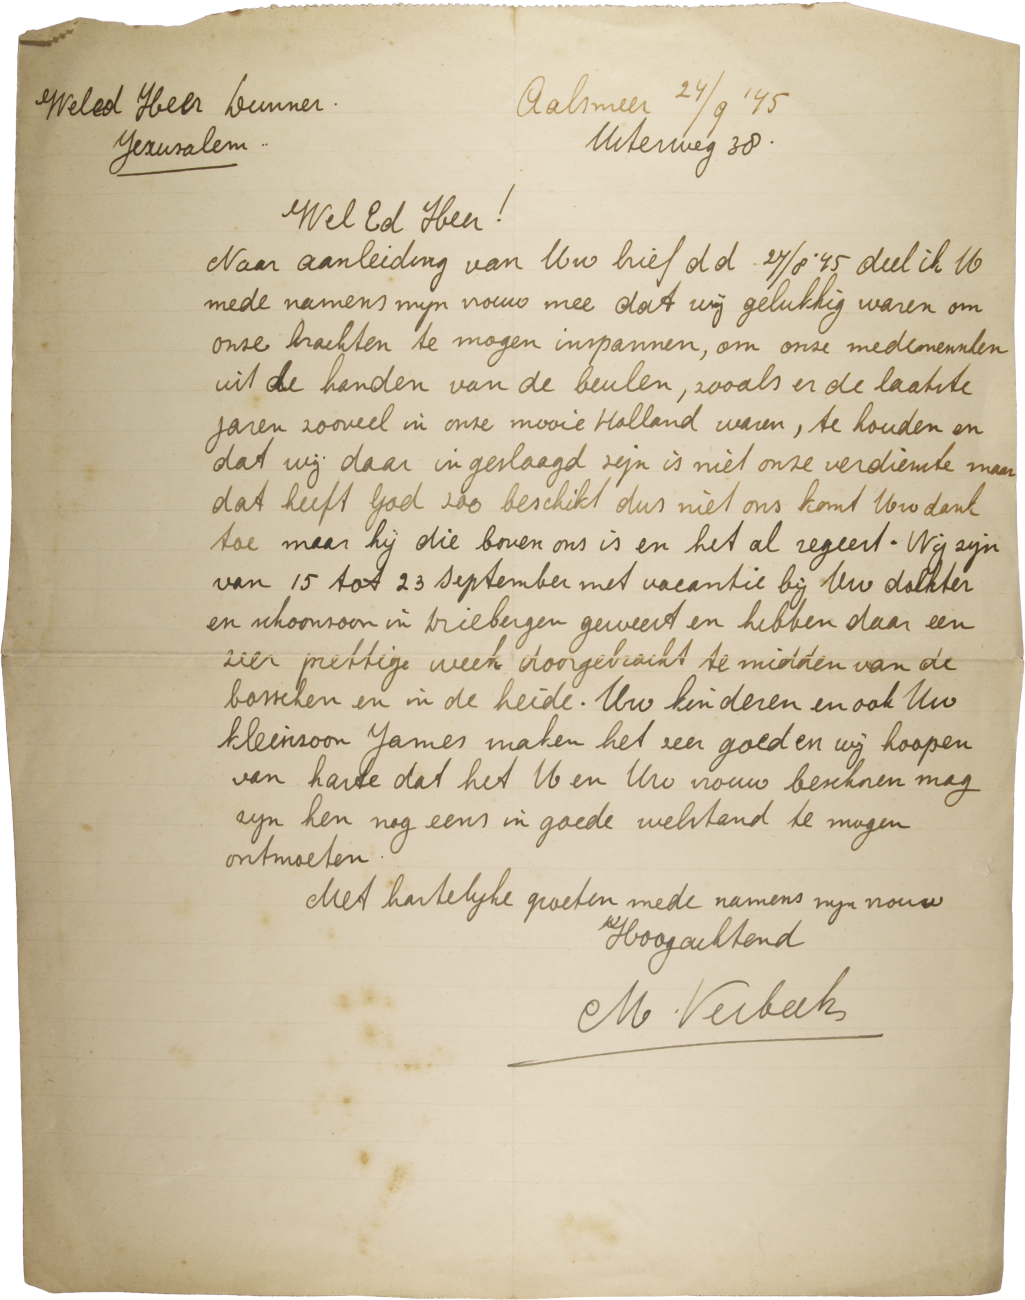 Weled Heer Dunner.
Aalsmeer 24/9 '45
Jeruzalem
Uiterweg 38.
Wel Ed Heer!
Naar aanleiding van Uw brief dd 27/8 '45 deel ik U
mede namens mijn vrouw mee dat wij gelukkig waren om
onze krachten te mogen inspannen, om onze medemenschen
uit de handen van de beulen, zooals er de laatste
jaren zooveel in onze mooie Holland waren, te houden en
dat wij daar in geslaagd zijn is niet onze verdienste maar
dat heeft God zoo beschikt dus niet ons komt Uw dank
toe maar hij die boven ons is en het al regeert. Wij zijn
van 15 tot 23 September met vacantie bij Uw dochter
en schoonzoon in Driebergen geweest en hebben daar een
zeer prettige week doorgebracht te midden van de
bosschen en in de heide. Uw kinderen en ook Uw
kleinzoon James maken het zeer goed en wij hoopen
van harte dat het U en Uw vrouw beschoren mag
zijn hen nog eens in goede welstand te mogen
ontmoeten.
Met hartelijke groeten mede namens mijn vrouw
Hoogachtend
M Verbeek